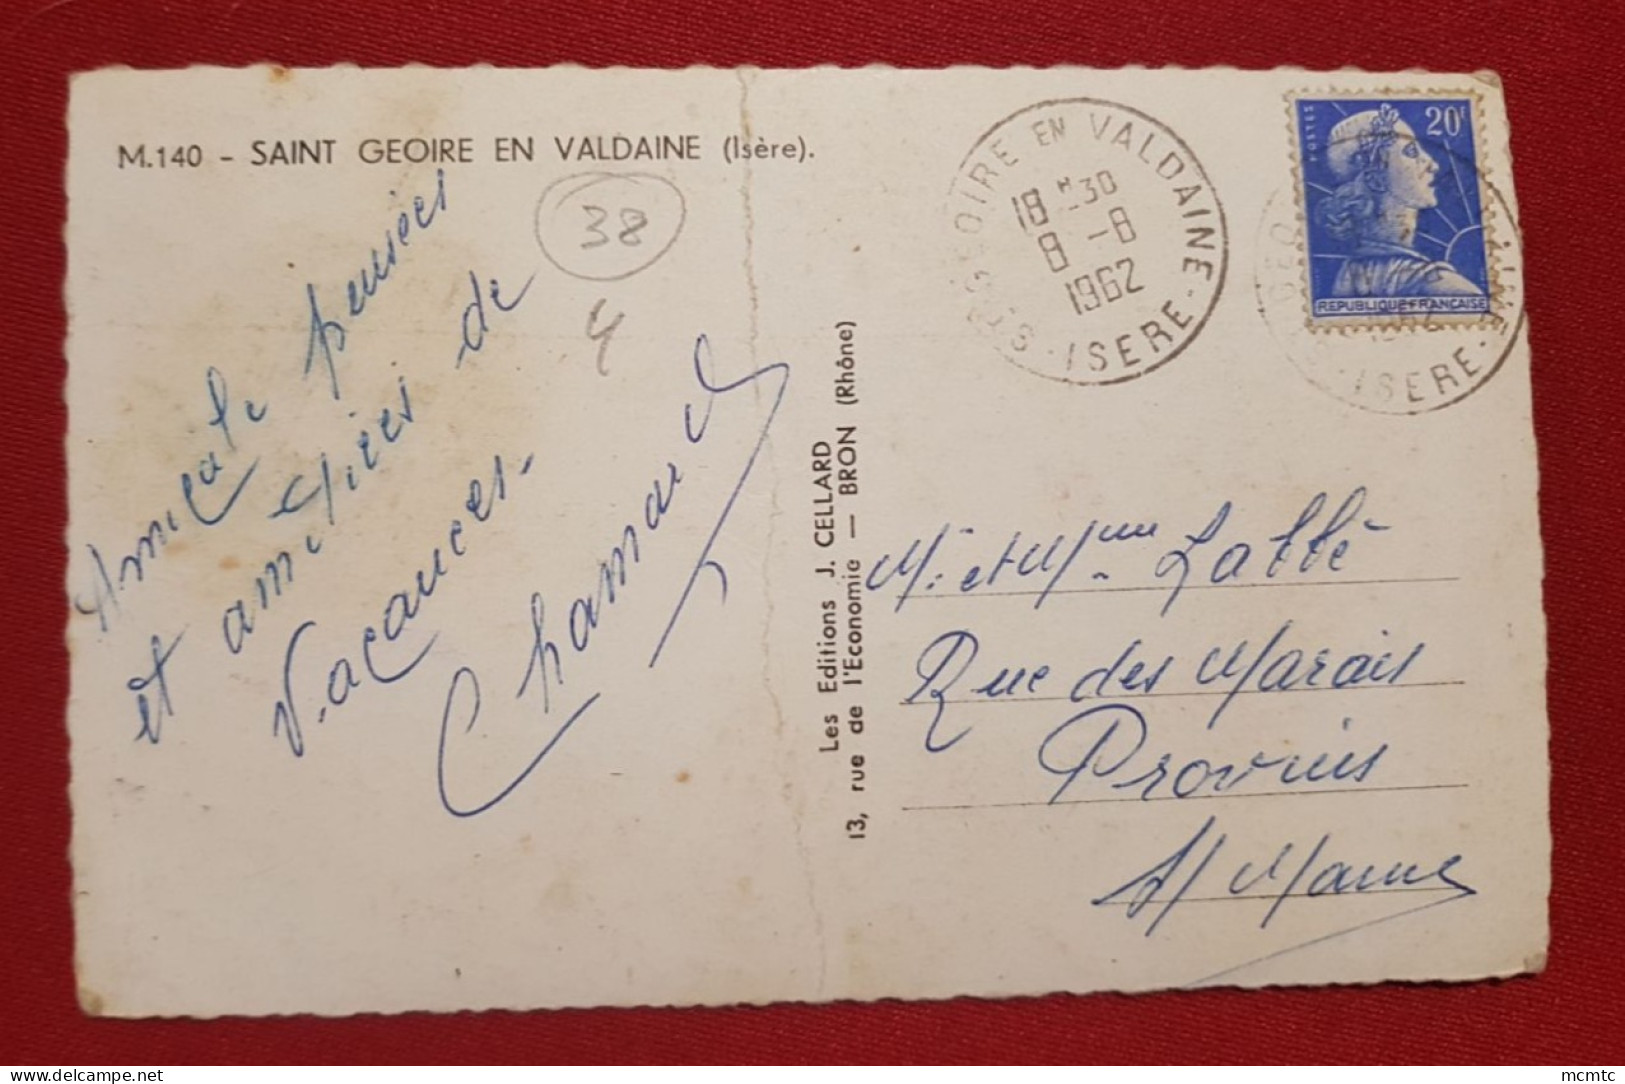 M.140 - SAINT GEOIRE EN VALDAINE (Isère).
38
4
Amicale pensées
et amitiés de
Vacances.
Chamaud
Les Editions J. CELLARD
13, rue de l'Economie — BRON (Rhône)
ST GEOIRE EN VALDAINE
18 H 30
8 - 8
1962
· ISERE ·
POSTES
20F
REPUBLIQUE FRANCAISE
GEO
· ISERE ·
M. et Mme Labbé
Rue des Marais
Provins
S/ Marne
www.delcampe.net
mcmtc